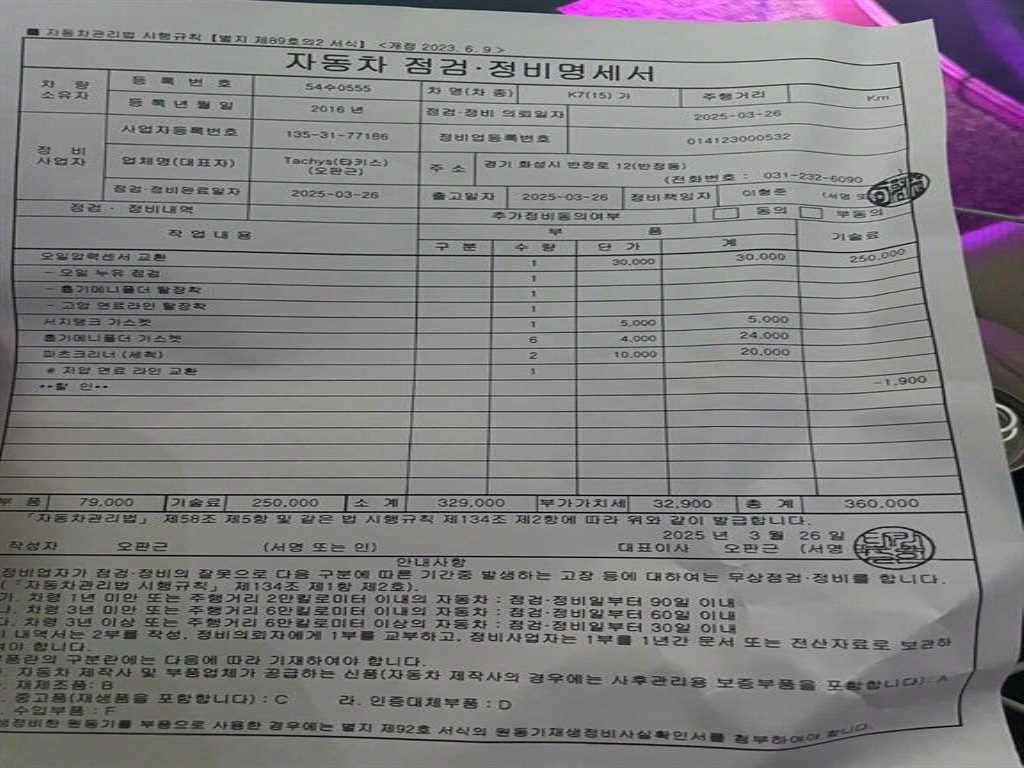 ■ 자동차관리법 시행규칙 [별지 제89호의2 서식] <개정 2023. 6. 9.>
자동차 점검·정비명세서
차 량 소유자 등 록 번 호 54수0555 차 명(차 종) K7(15) 가 주행거리 Km
등 록 년 월 일 2016 년 점검·정비 의뢰일자 2025-03-26
정 비 사업자 사업자등록번호 135-31-77186 정비업등록번호 014123000532
업체명(대표자) Tachys(타키스) (오판근) 주 소 경기 화성시 반정로 12(반정동)
(전화번호 : 031-232-6090
점검·정비완료일자 2025-03-26 출고일자 2025-03-26 정비책임자 이형준 (서명 또
점검 · 정비내역 추가정비동의여부 동의 부동의
작 업 내 용 부 품 기술료
구 분 수 량 단 가 계
오일압력센서 교환 1 30,000 30,000 250,000
- 오일 누유 점검 1
- 흡기메니폴더 탈장착 1
- 고압 연료라인 탈장착 1
서지탱크 가스켓 1 5,000 5,000
흡기메니폴더 가스켓 6 4,000 24,000
파츠크리너 (세척) 2 10,000 20,000
# 저압 연료 라인 교환 1
**할 인** -1,900
부 품 79,000 기술료 250,000 소 계 329,000 부가가치세 32,900 총 계 360,000
「자동차관리법」 제58조 제5항 및 같은 법 시행규칙 제134조 제2항에 따라 위와 같이 발급합니다.
2025 년 3 월 26 일
작성자 오판근 (서명 또는 인) 대표이사 오판근 (서명
안내사항
정비업자가 점검·정비의 잘못으로 다음 구분에 따른 기간중 발생하는 고장 등에 대하여는 무상점검·정비를 합니다.
(「자동차관리법 시행규칙」 제134조 제1항 제2호).
가. 차령 1년 미만 또는 주행거리 2만킬로미터 이내의 자동차 : 점검·정비일부터 90일 이내
나. 차령 3년 미만 또는 주행거리 6만킬로미터 이내의 자동차 : 점검·정비일부터 60일 이내
다. 차령 3년 이상 또는 주행거리 6만킬로미터 이상의 자동차 : 점검·정비일부터 30일 이내
내역서는 2부를 작성, 정비의뢰자에게 1부를 교부하고, 정비사업자는 1부를 1년간 문서 또는 전산자료로 보관하
여야 합니다.
부품란의 구분란에는 다음에 따라 기재하여야 합니다.
자동차 제작사 및 부품업체가 공급하는 신품(자동차 제작사의 경우에는 사후관리용 보증부품을 포함합니다) : A
재제조품: B
중고품(재생품을 포함합니다) : C 라. 인증대체부품 : D
수입부품 : F
생정비한 원동기를 부품으로 사용한 경우에는 별지 제92호 서식의 원동기재생정비사실확인서를 첨부하여야 합니다.